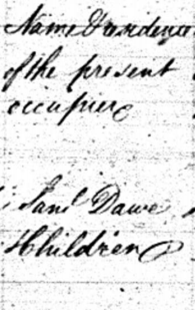 Name & residence
of the present
occupiers
Saml Dawe
& Children